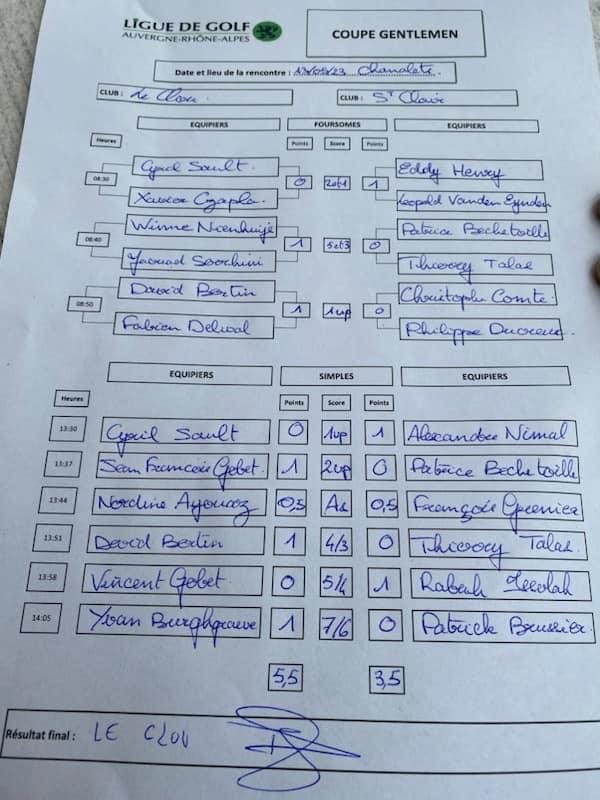 LIGUE DE GOLF
AUVERGNE-RHÔNE-ALPES
COUPE GENTLEMEN
Date et lieu de la rencontre : /05/23 Chanalets.
CLUB : Le Clou.
CLUB : St Claire
EQUIPIERS FOURSOMES EQUIPIERS
Heures Points Score Points
08:30 Cyril Sault. 0 2et1 1 Eddy Henry
Xavier Czapla. Leopold Vanden Eynden
08:40 Winne Nienhuijs 1 5et3 0 Patrice Bechetoille
Jaouad Thierry Talas
08:50 David Bertin 1 1up 0 Christophe Comte.
Fabien Delval Philippe Ducreux.
EQUIPIERS SIMPLES EQUIPIERS
Heures Points Score Points
13:30 Cyril Sault 0 1up 1 Alexandre Nimal
13:37 Jean Francois Gobet. 1 2up 0 Patrice Bechetoille
13:44 Nordine 0,5 As 0,5 François Grenier
13:51 David Bertin 1 4/3 0 Thierry Talas
13:58 Vincent Gobet 0 5/4 1 Rabah
14:05 Yvan Burghgraeve 1 7/6 0 Patrick Brussier.
5,5 3,5
Résultat final : LE CLOU